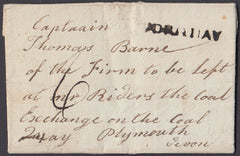 Captain
Thomas Barne
of the Firm to be Left
at mr Riders the Coal
Exchange on the Coal
Quay Plymouth
Devon
6